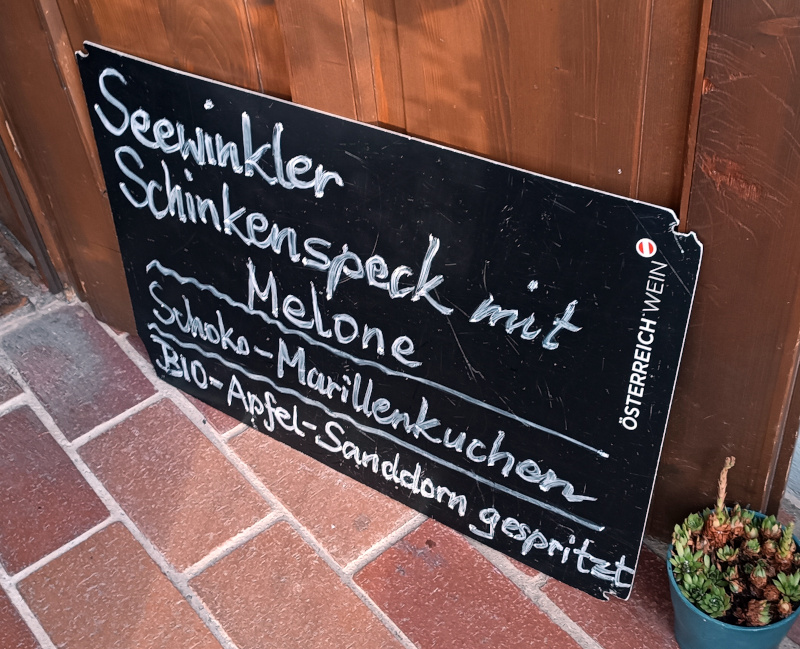 Seewinkler
Schinkenspeck mit
Melone
Schoko-Marillenkuchen
BIO-Apfel-Sanddorn gespritzt
ÖSTERREICH WEIN